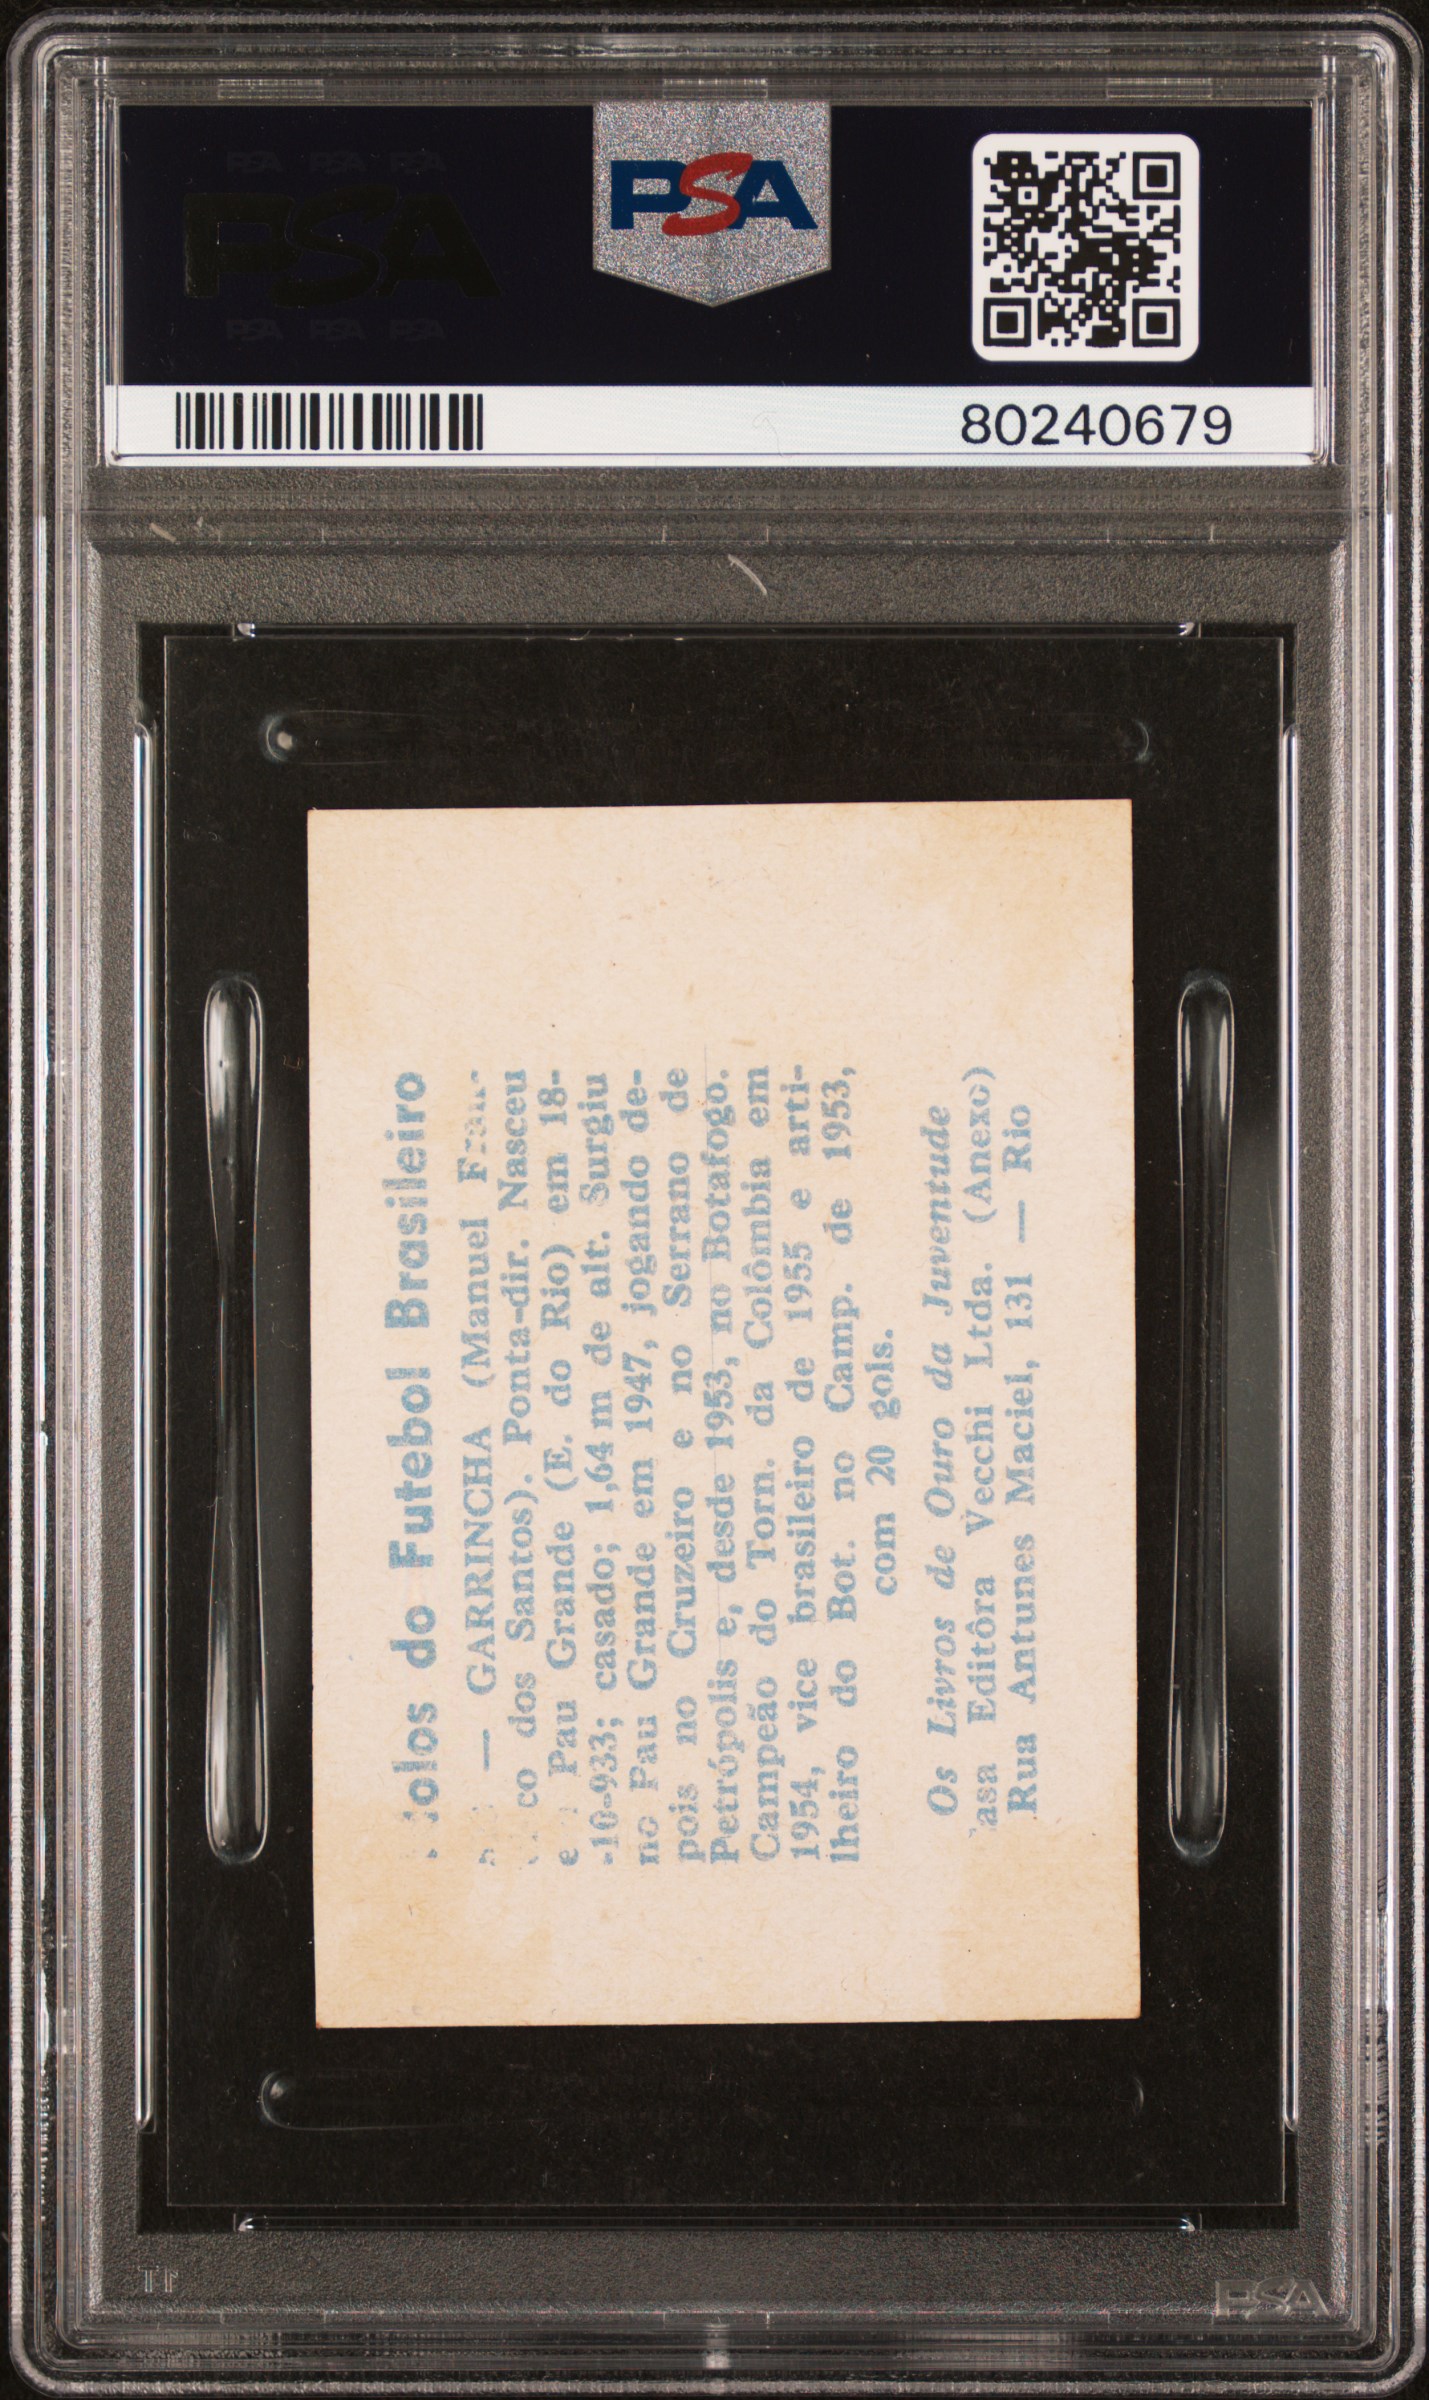 PSA PSA PSA
PSA
PSA PSA PSA
PSA
80240679
do Futebol Brasileiro
— GARRINCHA (Manuel
co dos Santos). Ponta-dir. Nasceu
e Pau Grande (E. do Rio) em 18-
-10-933; casado; 1,64 m de alt. Surgiu
no Pau Grande em 1947, jogando de-
pois no Cruzeiro e no Serrano de
Petrópolis e, desde 1953, no Botafogo.
Campeão do Torn. da Colômbia em
1954, vice brasileiro de 1955 e arti-
lheiro do Bot. no Camp. de 1953,
com 20 gols.
Os Livros de Ouro da Juventude
asa Editôra Vecchi Ltda. (Anexo)
Rua Antunes Maciel, 131 — Rio
PSA